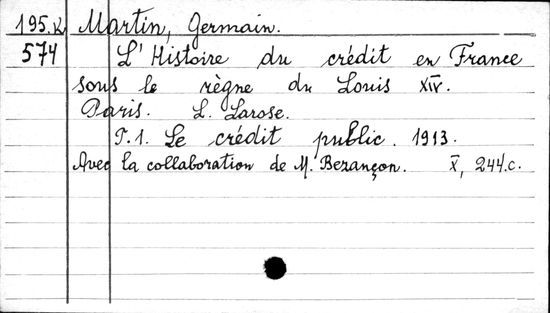 195.K Martin, Germain.
574 L'Histoire du crédit en France
sous le règne du Louis XIV.
Paris. L. Larose.
T.1. Le crédit public. 1913.
Avec la collaboration de M. Bezançon. X, 244.c.